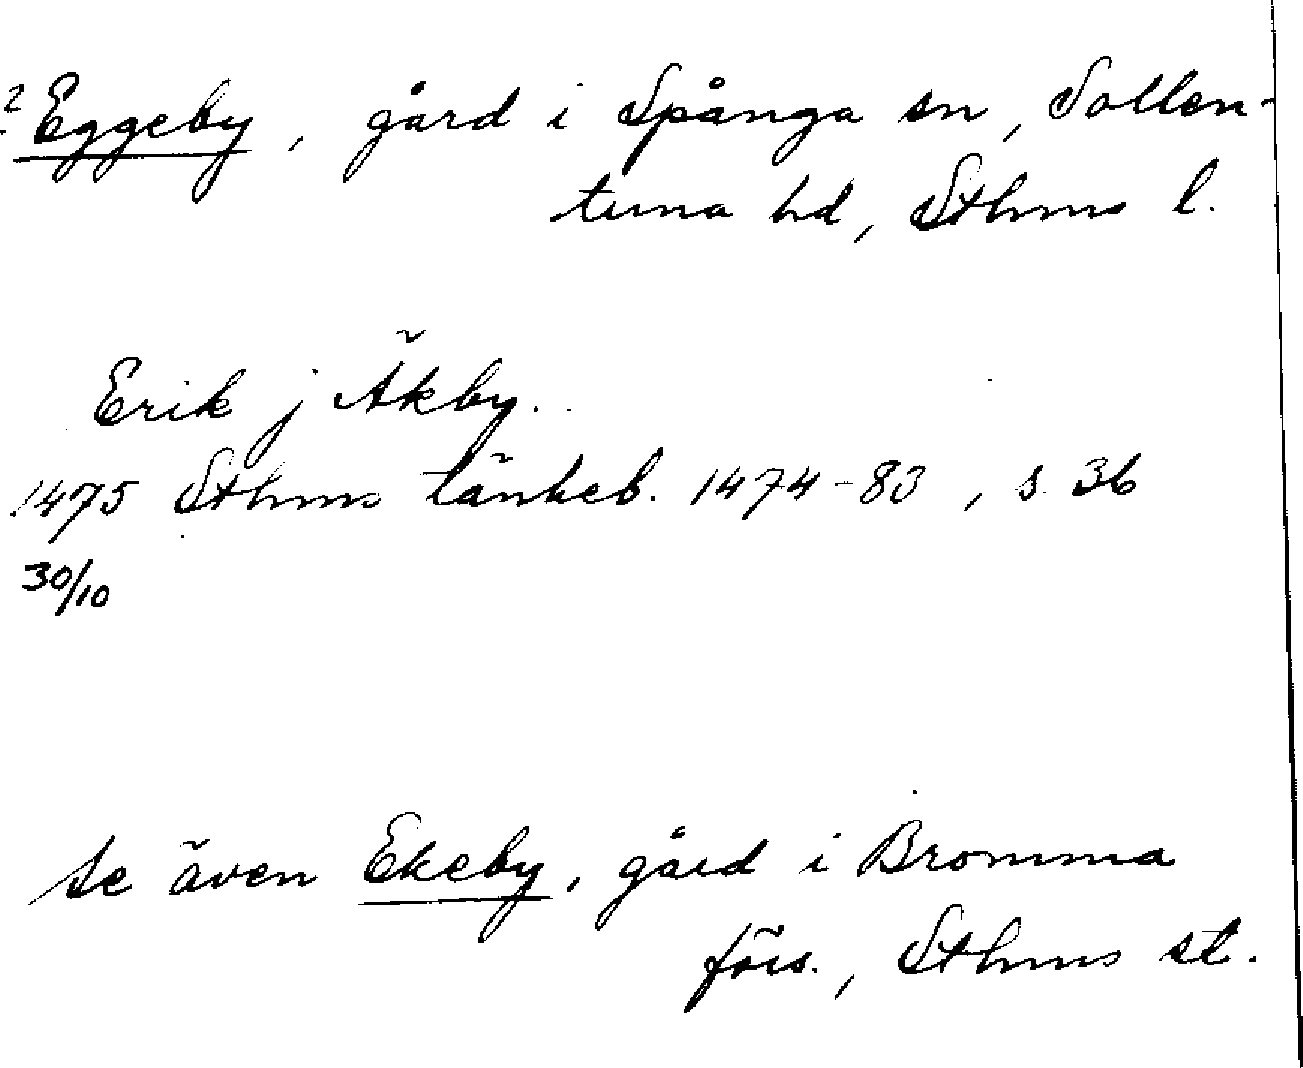 ? Eggeby, gård i Spånga sn, Sollen-
tuna hd, Sthms l.
Erik j Äkby.
1475 Sthms tänkeb. 1474-83, s. 36
30/10
Se även Ekeby, gård i Bromma
förs., Sthms st.